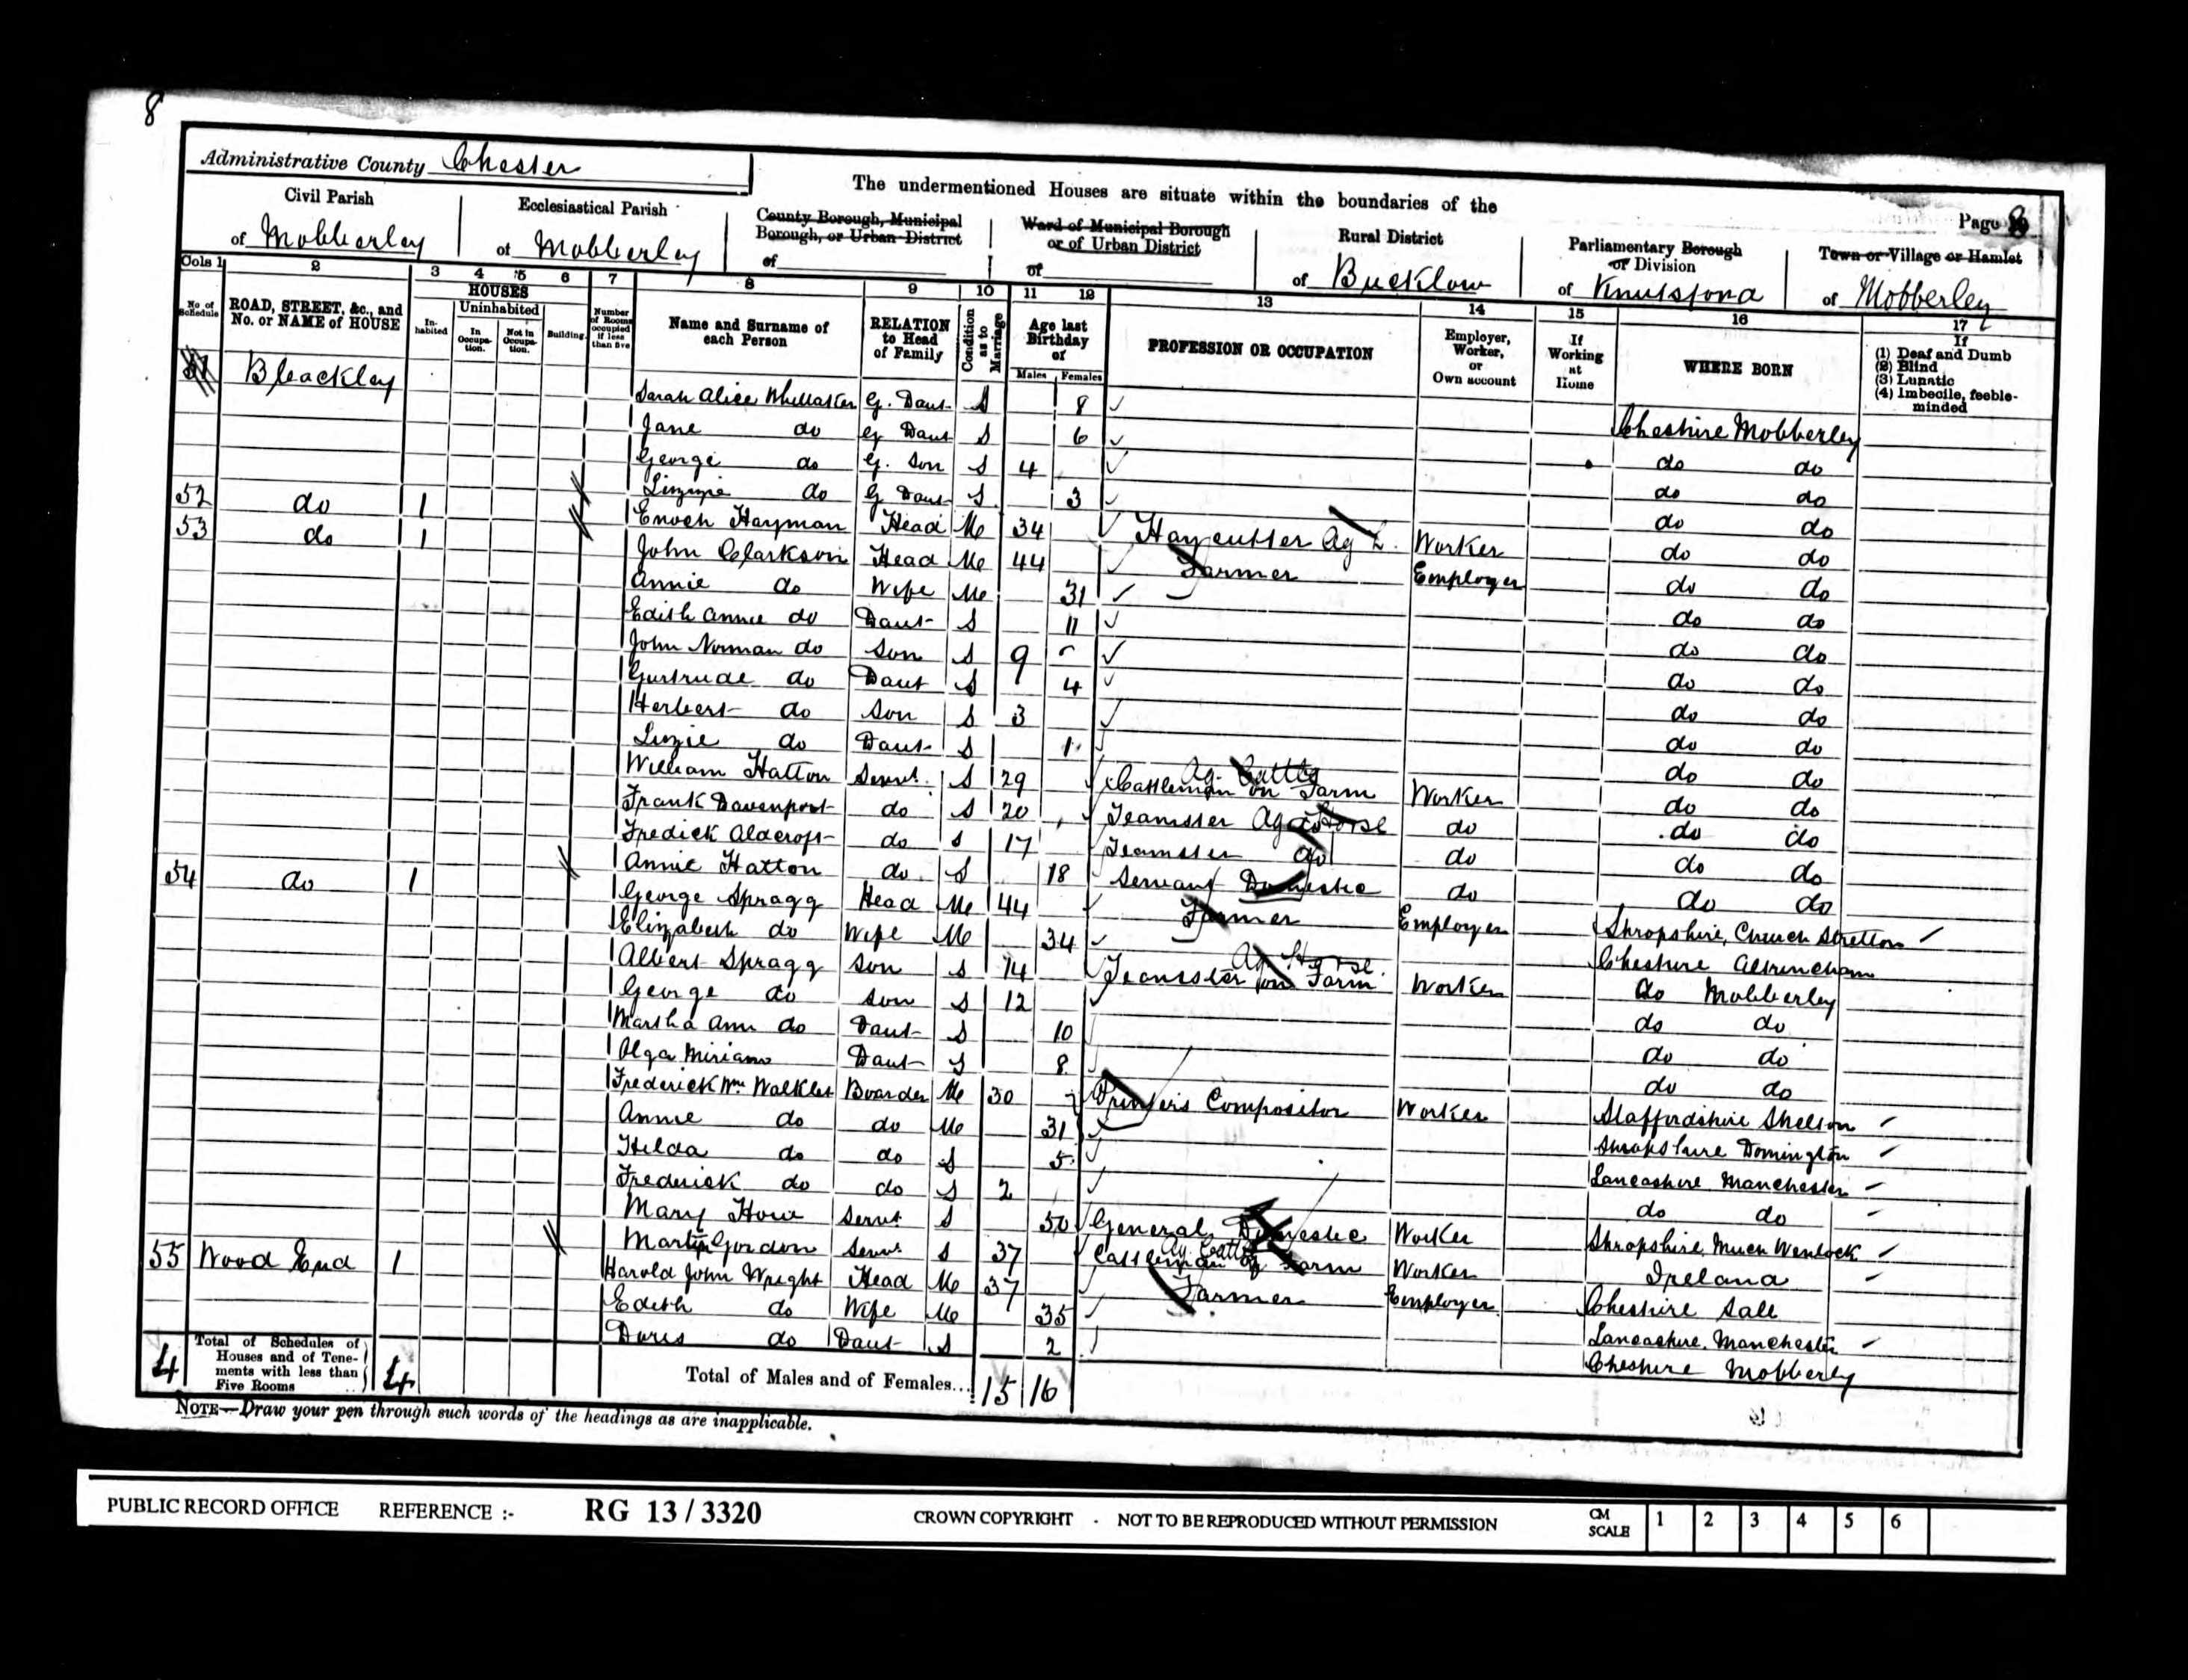 8
Administrative County Chester
The undermentioned Houses are situate within the boundaries of the
Page 8
Civil Parish
of Mobberley
Ecclesiastical Parish
of Mobberley
County Borough, Municipal
Borough, or Urban District
of
Ward of Municipal Borough
or of Urban District
of
Rural District
of Bucklow
Parliamentary Borough
or Division
of Knutsford
Town or Village or Hamlet
of Mobberley
Cols 1 2 3 4 5 6 7 8 9 10 11 12 13 14 15 16 17
No. of Schedule
ROAD, STREET, &c., and No. or NAME of HOUSE
HOUSES
In-habited
Uninhabited
In Occupa-tion.
Not in Occupa-tion.
Building.
Number of Rooms occupied if less than five
Name and Surname of each Person
RELATION to Head of Family
Condition as to Marriage
Age last Birthday of
Males Females
PROFESSION OR OCCUPATION
Employer, Worker, or Own account
If Working at Home
WHERE BORN
If
(1) Deaf and Dumb
(2) Blind
(3) Lunatic
(4) Imbecile, feeble-minded
51 Blackley Sarah Alice Whittaker G. Daut S 8 Cheshire Mobberley
Jane do G Daut S 6 do do
George do G. Son S 4 do do
Lizzie do G Daut S 3 do do
52 do 1 Enoch Hayman Head M 34 Haycutter Ag L. Worker do do
53 do 1 John Clarkson Head M 44 Farmer Employer do do
Annie do Wife M 31 do do
Edith Annie do Daut S 11 do do
John Norman do Son S 9 do do
Gertrude do Daut S 4 do do
Herbert do Son S 3 do do
Lizzie do Daut S 1 do do
William Hatton Servt. S 29 Cattleman on Farm Ag. Cattle Worker do do
Frank Davenport do S 20 Teamster Ag Horse do do do
Fredick Aldcroft do S 17 Teamster do do do do
Annie Hatton do S 18 Servant Domestic do do do
54 do 1 George Spragg Head M 44 Farmer Employer Shropshire, Church Stretton
Elizabeth do Wife M 34 Cheshire Altrincham
Albert Spragg Son S 14 Teamster on Farm Ag. Horse. Worker do Mobberley
George do Son S 12 do do
Martha Ann do Daut S 10 do do
Olga Miriam Daut S 8 do do
Frederick Wm Walklet Boarder M 30 Printers Compositor Worker Staffordshire Shelton
Annie do do M 31 Shropshire Donington
Hilda do do S 5 Lancashire Manchester
Frederick do do S 2 do do
Mary How Servt S 50 General Domestic Worker Shropshire Much Wenlock
Martin Gordon Servt. S 37 Cattleman on Farm Ag. Cattle Worker Ireland
55 Wood End 1 Harold John Wright Head M 37 Farmer Employer Cheshire Sale
Edith do Wife M 35 Lancashire, Manchester
Doris do Daut S 2 Cheshire Mobberley
4 Total of Schedules of Houses and of Tene-ments with less than Five Rooms 4 Total of Males and of Females... 15 16
NOTE—Draw your pen through such words of the headings as are inapplicable.
PUBLIC RECORD OFFICE REFERENCE :- RG 13 / 3320 CROWN COPYRIGHT - NOT TO BE REPRODUCED WITHOUT PERMISSION CM SCALE 1 2 3 4 5 6